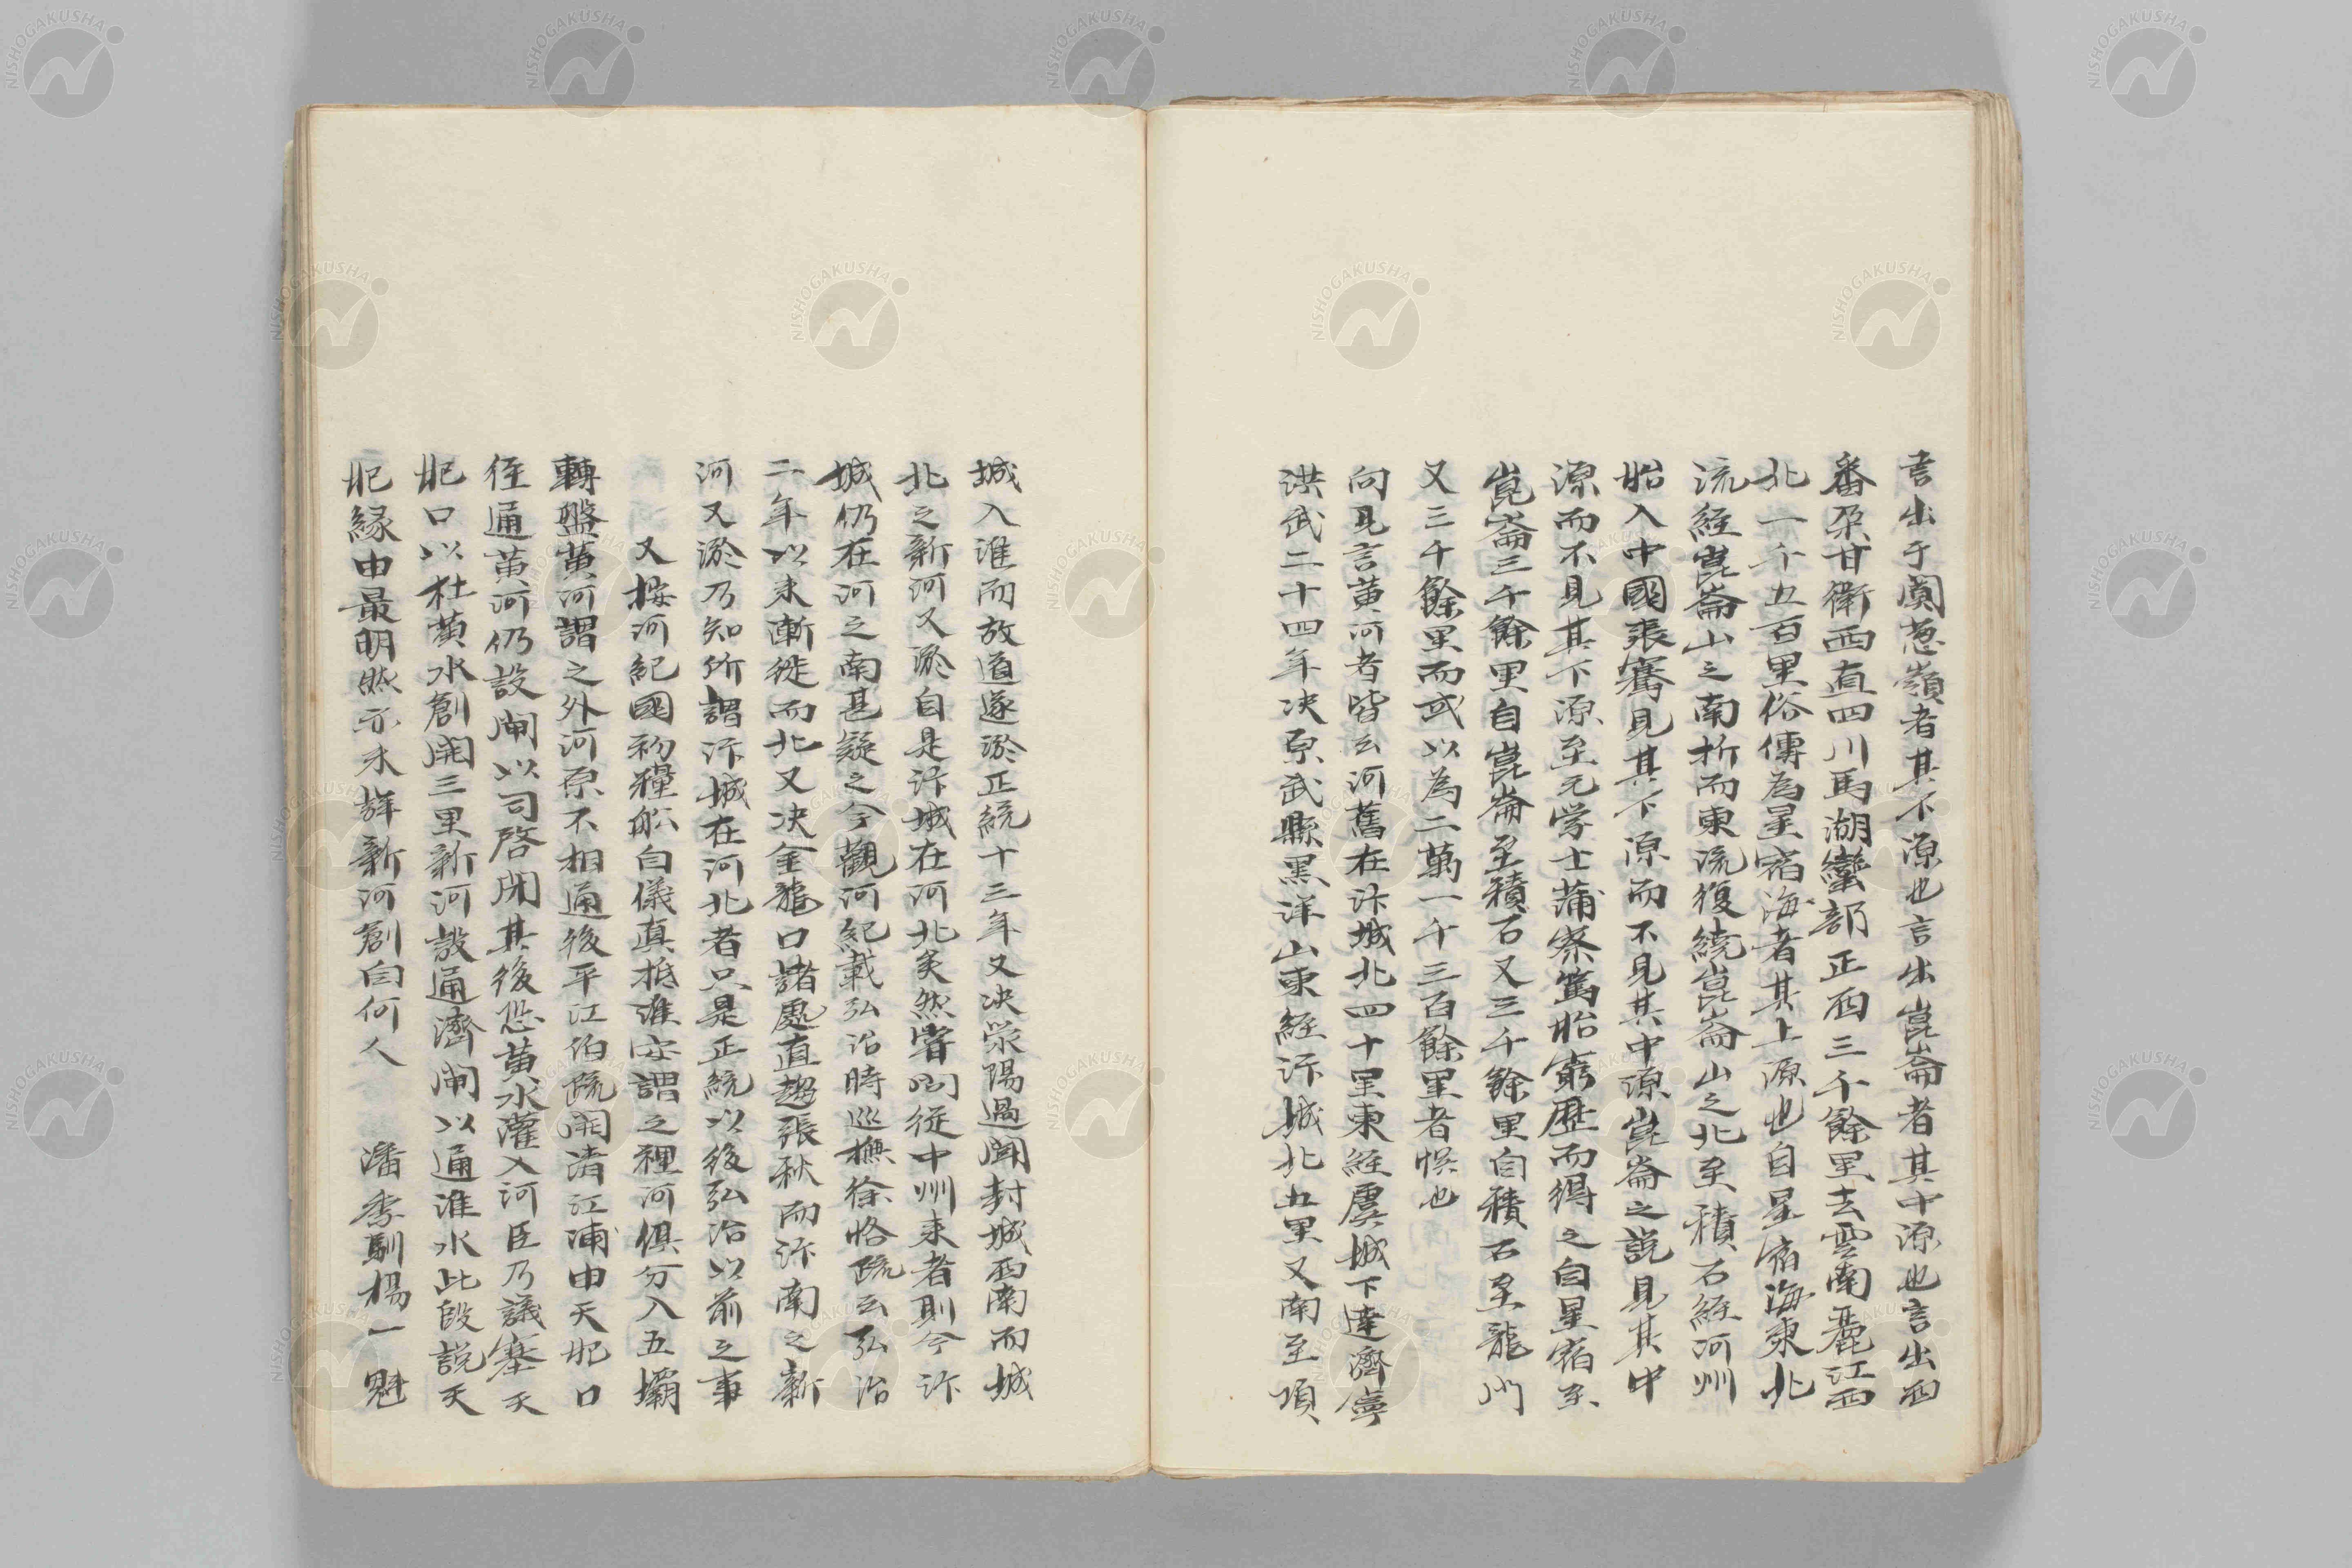 言出于闐葱嶺者其下源也言出崑崙者其中源也言出西
番朶甘衛西直四川馬湖蠻部正西三千餘里去雲南麗江西
北一千五百里俗傳為星宿海者其上源也自星宿海東北
流經崑崙山之南折而東流復繞崑崙山之北至積石經河州
始入中國張騫見其下源而不見其中源崑崙之説見其中
源而不見其下源至元学士蒲察篤始窮歷而得之自星宿至
崑崙三千餘里自崑崙至積石又三千餘里自積石至龍門
又三千餘里而或以為二萬一千三百餘里者悞也
向見言黄河者皆云河舊在汴城北四十里東經虞城下達濟寧
洪武二十四年决原武縣黒洋山東經汴城北五里又南至項
城入淮而故道遂淤正統十三年又决滎陽過開封城西南而城
北之新河又淤自是汴城在河北矣然嘗問従中州来者則今汴
城仍在河之南甚疑之今觀河紀載弘治時巡撫徐恪疏云弘治
二年以来漸徙而北又决金龍口諸處直趨張秋而汴南之新
河又淤乃知所謂汴城在河北者只是正統以後弘治以前之事
又按河紀國初糧船自儀真抵淮安謂之裡河俱分入五壩
轉盤黄河謂之外河原不相通後平江伯疏開清江浦由天妃口
径通黄河仍設閘以司啓閉其後恐黄水灌入河臣乃議塞天
妃口以杜黄水創開三里新河設通濟閘以通淮水此段説天
妃縁由最明然亦未詳新河創自何人　潘季馴楊一魁